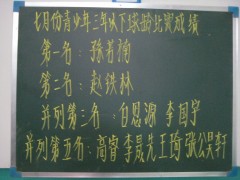 七月份青少年三年以下球龄比赛成绩
第一名：孙哲梅
第二名：赵铁林
并列第三名：白恩源 李国宇
并列第五名：高睿 李晟先 王琦 张公昊轩